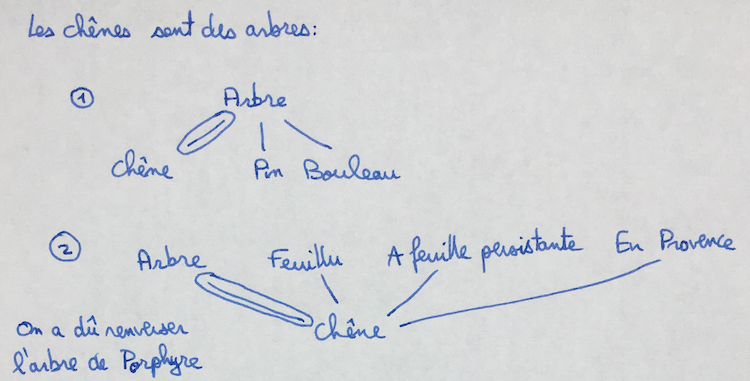 Les chênes sont des arbres:
① Arbre
Chêne Pin Bouleau
② Arbre Feuillu A feuille persistante En Provence
Chêne
On a dû renverser
l'arbre de Porphyre